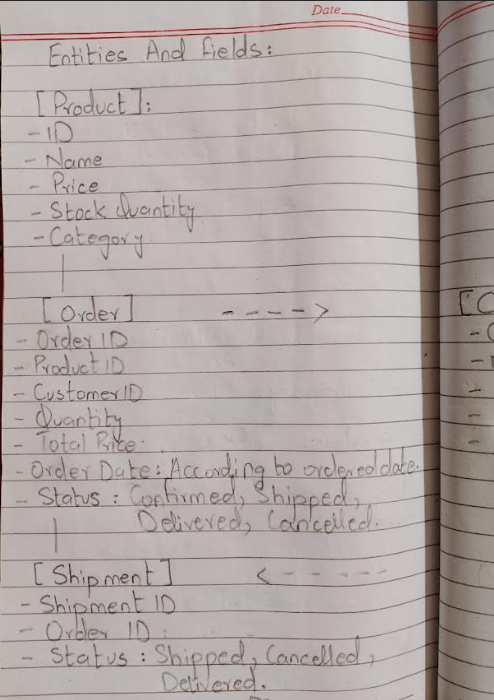 Date
Entities And Fields:
[Product]:
- ID
- Name
- Price
- Stock Quantity
- Category
[Order] ----->
- Order ID
- Product ID
- Customer ID
- Quantity
- Total Price.
- Order Date: According to ordered date.
- Status: Confirmed, Shipped,
Delivered, Cancelled.
[Shipment] <-----
- Shipment ID
- Order ID
- Status: Shipped, Cancelled,
Delivered.
[C